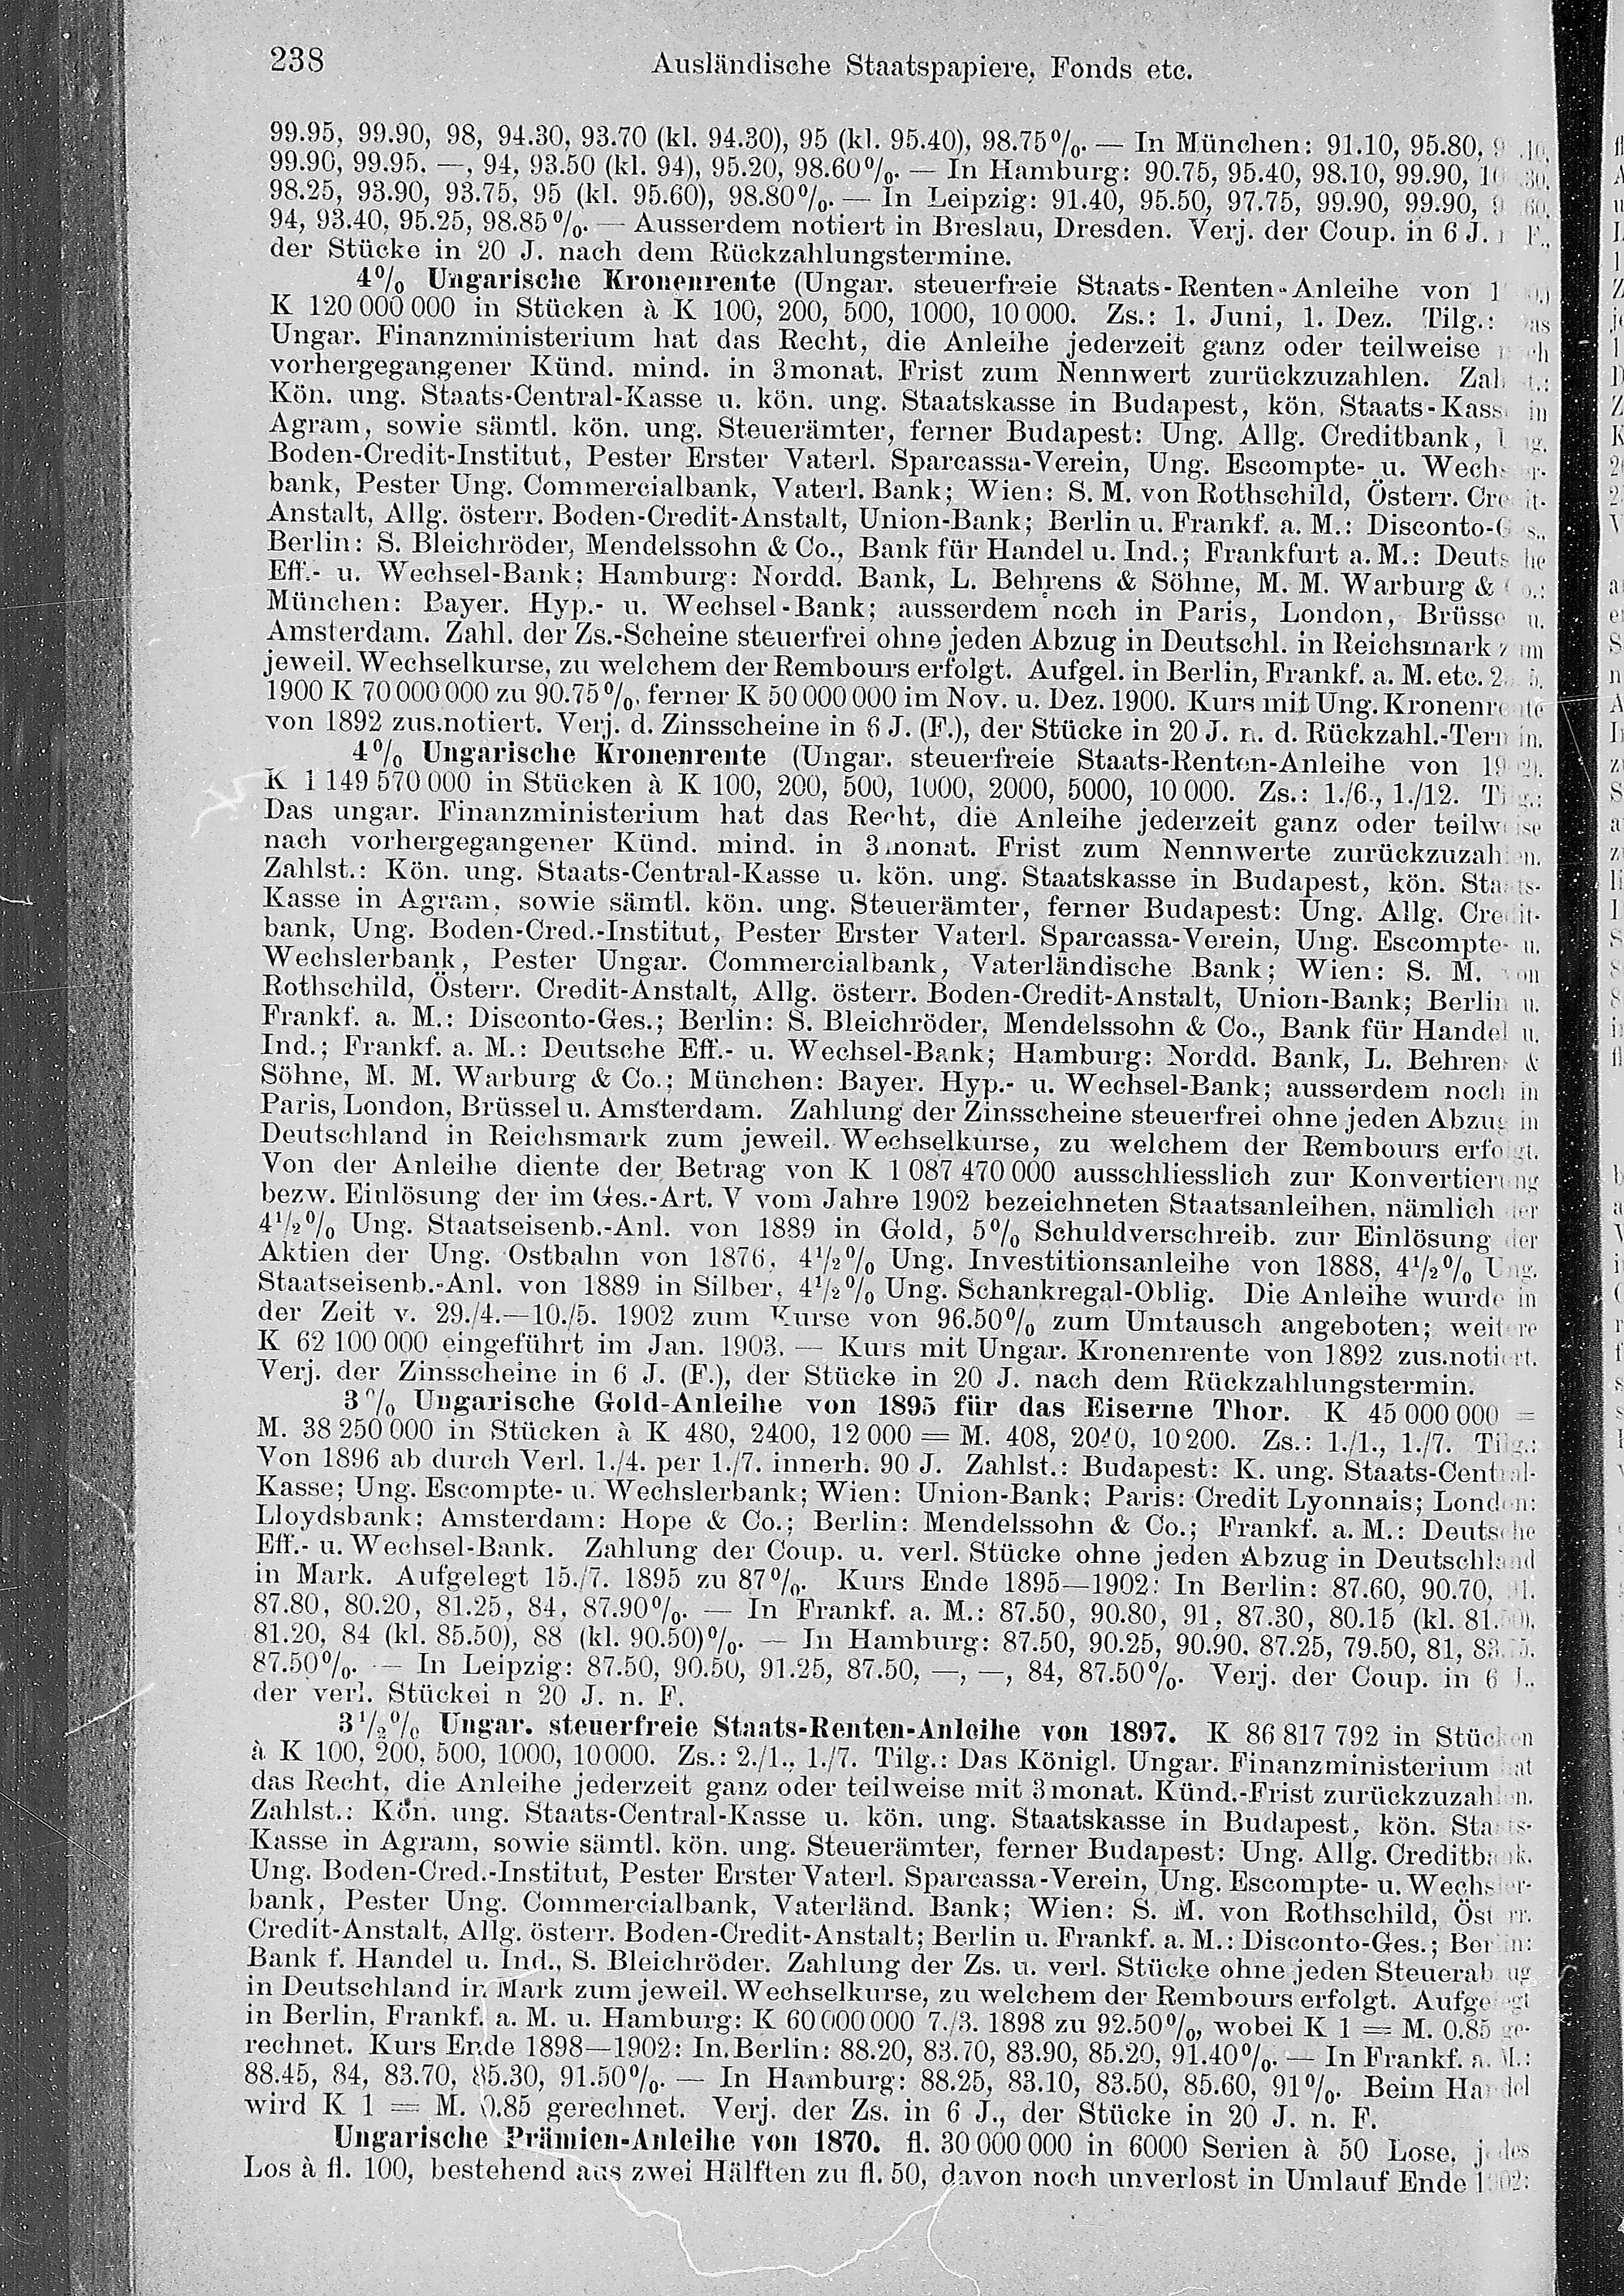 238 Ausländische Staatspapiere, Fonds etc.
99.95, 99.90, 98, 94.30, 93.70 (kl. 94.30), 95 (kl. 95.40), 98.75%. — In München: 91.10, 95.80,
99.90, 99.95, —, 94, 93.50 (kl. 94), 95.20, 98.60%. — In Hamburg: 90.75, 95.40, 98.10, 99.90,
98.25, 93.90, 93.75, 95 (kl. 95.60), 98.80%. — In Leipzig: 91.40, 95.50, 97.75, 99.90, 99.90,
94, 93.40, 95.25, 98.85%. — Ausserdem notiert in Breslau, Dresden. Verj. der Coup. in 6 J. F.,
der Stücke in 20 J. nach dem Rückzahlungstermine.
4% Ungarische Kronenrente (Ungar. steuerfreie Staats-Renten-Anleihe von
K 120 000 000 in Stücken à K 100, 200, 500, 1000, 10 000. Zs.: 1. Juni, 1. Dez. Tilg.: Das
Ungar. Finanzministerium hat das Recht, die Anleihe jederzeit ganz oder teilweise nach
vorhergegangener Künd. mind. in 3monat. Frist zum Nennwert zurückzuzahlen. Zahlst.:
Kön. ung. Staats-Central-Kasse u. kön. ung. Staatskasse in Budapest, kön. Staats-Kasse in
Agram, sowie sämtl. kön. ung. Steuerämter, ferner Budapest: Ung. Allg. Creditbank, Ung.
Boden-Credit-Institut, Pester Erster Vaterl. Sparcassa-Verein, Ung. Escompte- u. Wechsler-
bank, Pester Ung. Commercialbank, Vaterl. Bank; Wien: S. M. von Rothschild, Österr. Credit-
Anstalt, Allg. österr. Boden-Credit-Anstalt, Union-Bank; Berlin u. Frankf. a. M.: Disconto-Ges.,
Berlin: S. Bleichröder, Mendelssohn & Co., Bank für Handel u. Ind.; Frankfurt a. M.: Deutsche
Eff.- u. Wechsel-Bank; Hamburg: Nordd. Bank, L. Behrens & Söhne, M. M. Warburg & Co.:
München: Bayer. Hyp.- u. Wechsel-Bank; ausserdem noch in Paris, London, Brüssel u.
Amsterdam. Zahl. der Zs.-Scheine steuerfrei ohne jeden Abzug in Deutschl. in Reichsmark zum
jeweil. Wechselkurse, zu welchem der Rembours erfolgt. Aufgel. in Berlin, Frankf. a. M. etc.
1900 K 70 000 000 zu 90.75%, ferner K 50 000 000 im Nov. u. Dez. 1900. Kurs mit Ung. Kronenrente
von 1892 zus.notiert. Verj. d. Zinsscheine in 6 J. (F.), der Stücke in 20 J. n. d. Rückzahl.-Termin.
4% Ungarische Kronenrente (Ungar. steuerfreie Staats-Renten-Anleihe von 1902).
K 1 149 570 000 in Stücken à K 100, 200, 500, 1000, 2000, 5000, 10 000. Zs.: 1./6., 1./12. Tilg.:
Das ungar. Finanzministerium hat das Recht, die Anleihe jederzeit ganz oder teilweise
nach vorhergegangener Künd. mind. in 3monat. Frist zum Nennwerte zurückzuzahlen.
Zahlst.: Kön. ung. Staats-Central-Kasse u. kön. ung. Staatskasse in Budapest, kön. Staats-
Kasse in Agram, sowie sämtl. kön. ung. Steuerämter, ferner Budapest: Ung. Allg. Credit-
bank, Ung. Boden-Cred.-Institut, Pester Erster Vaterl. Sparcassa-Verein, Ung. Escompte- u.
Wechslerbank, Pester Ungar. Commercialbank, Vaterländische Bank; Wien: S. M. von
Rothschild, Österr. Credit-Anstalt, Allg. österr. Boden-Credit-Anstalt, Union-Bank; Berlin u.
Frankf. a. M.: Disconto-Ges.; Berlin: S. Bleichröder, Mendelssohn & Co., Bank für Handel u.
Ind.; Frankf. a. M.: Deutsche Eff.- u. Wechsel-Bank; Hamburg: Nordd. Bank, L. Behrens &
Söhne, M. M. Warburg & Co.; München: Bayer. Hyp.- u. Wechsel-Bank; ausserdem noch in
Paris, London, Brüssel u. Amsterdam. Zahlung der Zinsscheine steuerfrei ohne jeden Abzug in
Deutschland in Reichsmark zum jeweil. Wechselkurse, zu welchem der Rembours erfolgt.
Von der Anleihe diente der Betrag von K 1 087 470 000 ausschliesslich zur Konvertierung
bezw. Einlösung der im Ges.-Art. V vom Jahre 1902 bezeichneten Staatsanleihen, nämlich der
4½% Ung. Staatseisenb.-Anl. von 1889 in Gold, 5% Schuldverschreib. zur Einlösung der
Aktien der Ung. Ostbahn von 1876, 4½% Ung. Investitionsanleihe von 1888, 4½% Ung.
Staatseisenb.-Anl. von 1889 in Silber, 4½% Ung. Schankregal-Oblig. Die Anleihe wurde in
der Zeit v. 29./4.—10./5. 1902 zum Kurse von 96.50% zum Umtausch angeboten; weitere
K 62 100 000 eingeführt im Jan. 1903. — Kurs mit Ungar. Kronenrente von 1892 zus.notiert.
Verj. der Zinsscheine in 6 J. (F.), der Stücke in 20 J. nach dem Rückzahlungstermin.
3% Ungarische Gold-Anleihe von 1895 für das Eiserne Thor. K 45 000 000 =
M. 38 250 000 in Stücken à K 480, 2400, 12 000 = M. 408, 2040, 10 200. Zs.: 1./1., 1./7. Tilg.:
Von 1896 ab durch Verl. 1./4. per 1./7. innerh. 90 J. Zahlst.: Budapest: K. ung. Staats-Central-
Kasse; Ung. Escompte- u. Wechslerbank; Wien: Union-Bank; Paris: Credit Lyonnais; London:
Lloydsbank; Amsterdam: Hope & Co.; Berlin: Mendelssohn & Co.; Frankf. a. M.: Deutsche
Eff.- u. Wechsel-Bank. Zahlung der Coup. u. verl. Stücke ohne jeden Abzug in Deutschland
in Mark. Aufgelegt 15./7. 1895 zu 87%. Kurs Ende 1895—1902: In Berlin: 87.60, 90.70, 91.
87.80, 80.20, 81.25, 84, 87.90%. — In Frankf. a. M.: 87.50, 90.80, 91, 87.30, 80.15 (kl. 81.50),
81.20, 84 (kl. 85.50), 88 (kl. 90.50)%. — In Hamburg: 87.50, 90.25, 90.90, 87.25, 79.50, 81, 83.75,
87.50%. — In Leipzig: 87.50, 90.50, 91.25, 87.50, —, —, 84, 87.50%. Verj. der Coup. in 6 J.,
der verl. Stückei n 20 J. n. F.
3½% Ungar. steuerfreie Staats-Renten-Anleihe von 1897. K 86 817 792 in Stücken
à K 100, 200, 500, 1000, 10000. Zs.: 2./1., 1./7. Tilg.: Das Königl. Ungar. Finanzministerium hat
das Recht, die Anleihe jederzeit ganz oder teilweise mit 3monat. Künd.-Frist zurückzuzahlen.
Zahlst.: Kön. ung. Staats-Central-Kasse u. kön. ung. Staatskasse in Budapest, kön. Staats-
Kasse in Agram, sowie sämtl. kön. ung. Steuerämter, ferner Budapest: Ung. Allg. Creditbank.
Ung. Boden-Cred.-Institut, Pester Erster Vaterl. Sparcassa-Verein, Ung. Escompte- u. Wechsler-
bank, Pester Ung. Commercialbank, Vaterländ. Bank; Wien: S. M. von Rothschild, Österr.
Credit-Anstalt, Allg. österr. Boden-Credit-Anstalt; Berlin u. Frankf. a. M.: Disconto-Ges.; Berlin:
Bank f. Handel u. Ind., S. Bleichröder. Zahlung der Zs. u. verl. Stücke ohne jeden Steuerabzug
in Deutschland in Mark zum jeweil. Wechselkurse, zu welchem der Rembours erfolgt. Aufgelegt
in Berlin, Frankf. a. M. u. Hamburg: K 60 000 000 7./3. 1898 zu 92.50%, wobei K 1 = M. 0.85 ge-
rechnet. Kurs Ende 1898—1902: In Berlin: 88.20, 83.70, 83.90, 85.20, 91.40%. — In Frankf. a. M.:
88.45, 84, 83.70, 85.30, 91.50%. — In Hamburg: 88.25, 83.10, 83.50, 85.60, 91%. Beim Handel
wird K 1 = M. 0.85 gerechnet. Verj. der Zs. in 6 J., der Stücke in 20 J. n. F.
Ungarische Prämien-Anleihe von 1870. fl. 30 000 000 in 6000 Serien à 50 Lose, jedes
Los à fl. 100, bestehend aus zwei Hälften zu fl. 50, davon noch unverlost in Umlauf Ende 1902: